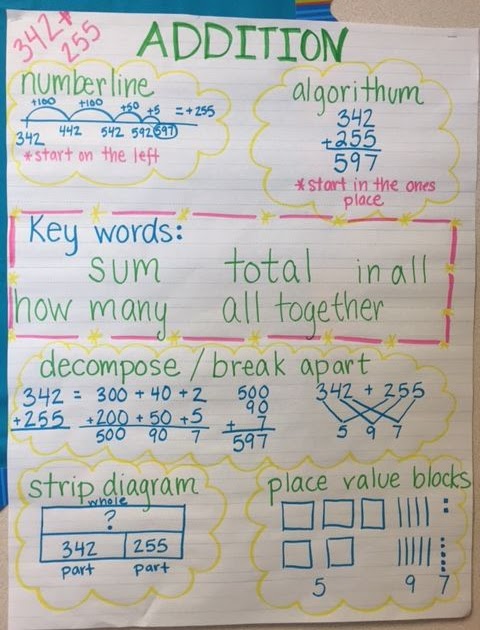 342 +
255
ADDITION
numberline
+100 +100 +50 +5 = +255
342 442 542 592 597
*start on the left
algorithum
342
+255
597
*start in the ones
place
Key words:
sum total in all
how many all together
decompose / break apart
342 = 300 + 40 + 2
+255 +200 + 50 + 5
500 90 7
500
90
+ 7
597
342 + 255
5 9 7
strip diagram
whole
?
342 255
part part
place value blocks
5 9 7